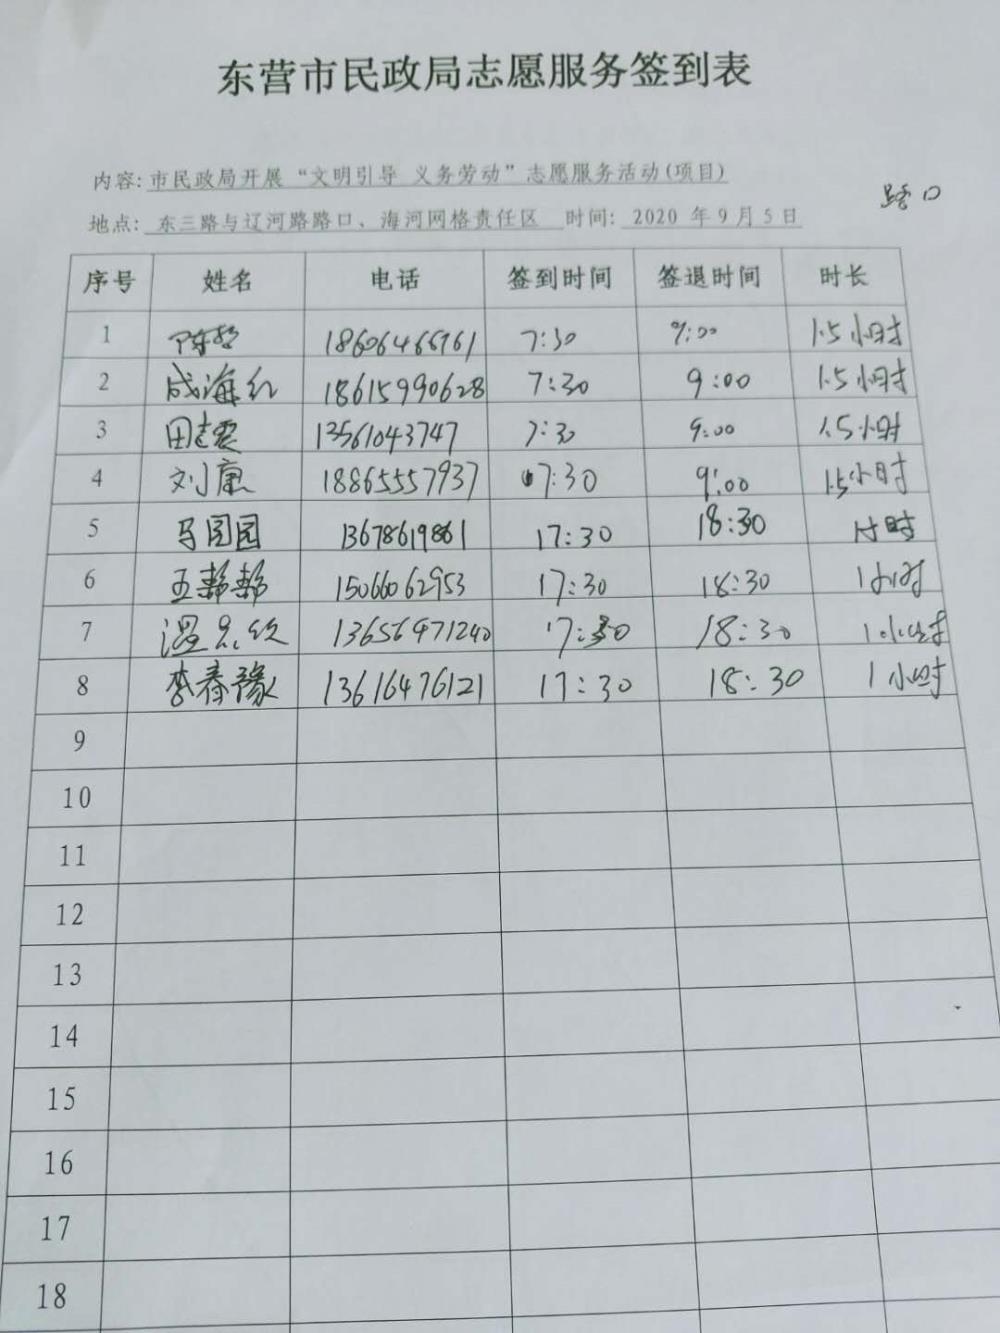 东营市民政局志愿服务签到表
内容: 市民政局开展“文明引导 义务劳动”志愿服务活动(项目)
路口
地点: 东三路与辽河路路口、海河网格责任区 时间: 2020 年9月5日
序号 姓名 电话 签到时间 签退时间 时长
1 陈 18606466961 7:30 9:00 1.5小时
2 成海红 18615990628 7:30 9:00 1.5小时
3 田志霞 13561043747 7:30 9:00 1.5小时
4 刘康 18865557937 07:30 9:00 1.5小时
5 马园园 13678619861 17:30 18:30 1小时
6 王静静 15066062953 17:30 18:30 1小时
7 温 13656471240 17:30 18:30 1小时
8 李春豫 13616476121 17:30 18:30 1小时
9
10
11
12
13
14
15
16
17
18